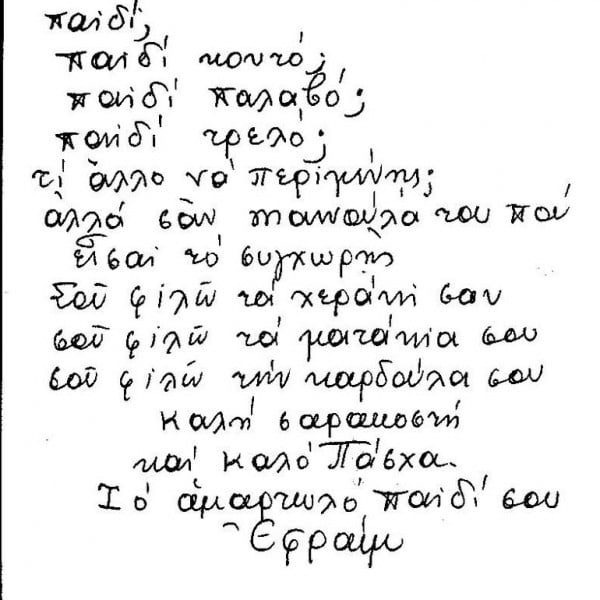 παιδί;
παιδί κουτό;
παιδί παλαβό;
παιδί τρελό;
τί ἄλλο νά περιμένης;
ἀλλά σάν μανούλα του πού
εἶσαι τό συγχωρῆς
Σοῦ φιλῶ τά χεράκη σαν
σοῦ φιλῶ τά ματάκια σου
σοῦ φιλῶ τήν καρδούλα σου
Καλή σαρακοστή
καί καλό Πάσχα.
Τό ἁμαρτωλό παιδί σου
Ἐφραίμ